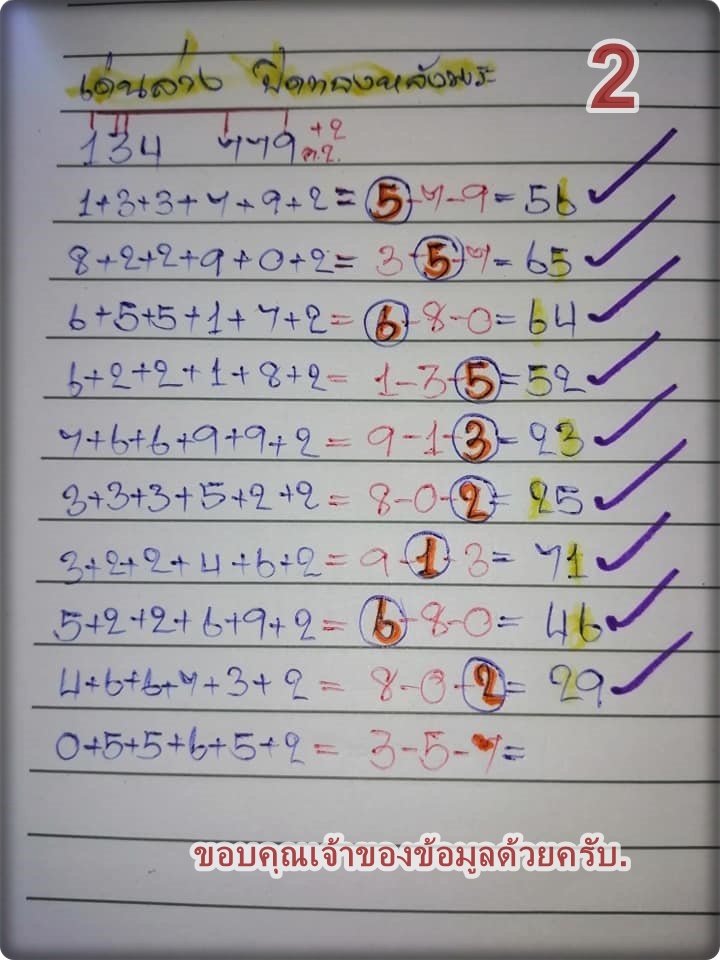 เด่นล่าง ปิดทองหลังพระ
2
134 779 +2
ค.ที่.
1+3+3+7+9+2= 5-7-9= 56
8+2+2+9+0+2= 3-5-7= 65
6+5+5+1+7+2= 6-8-0= 64
6+2+2+1+8+2= 1-3-5= 52
7+6+6+9+9+2= 9-1-3= 23
3+3+3+5+2+2= 8-0-2= 25
3+2+2+4+6+2= 9-1-3= 71
5+2+2+6+9+2= 6-8-0= 46
4+6+6+7+3+2= 8-0-2= 29
0+5+5+6+5+2= 3-5-7=
ขอบคุณเจ้าของข้อมูลด้วยครับ.